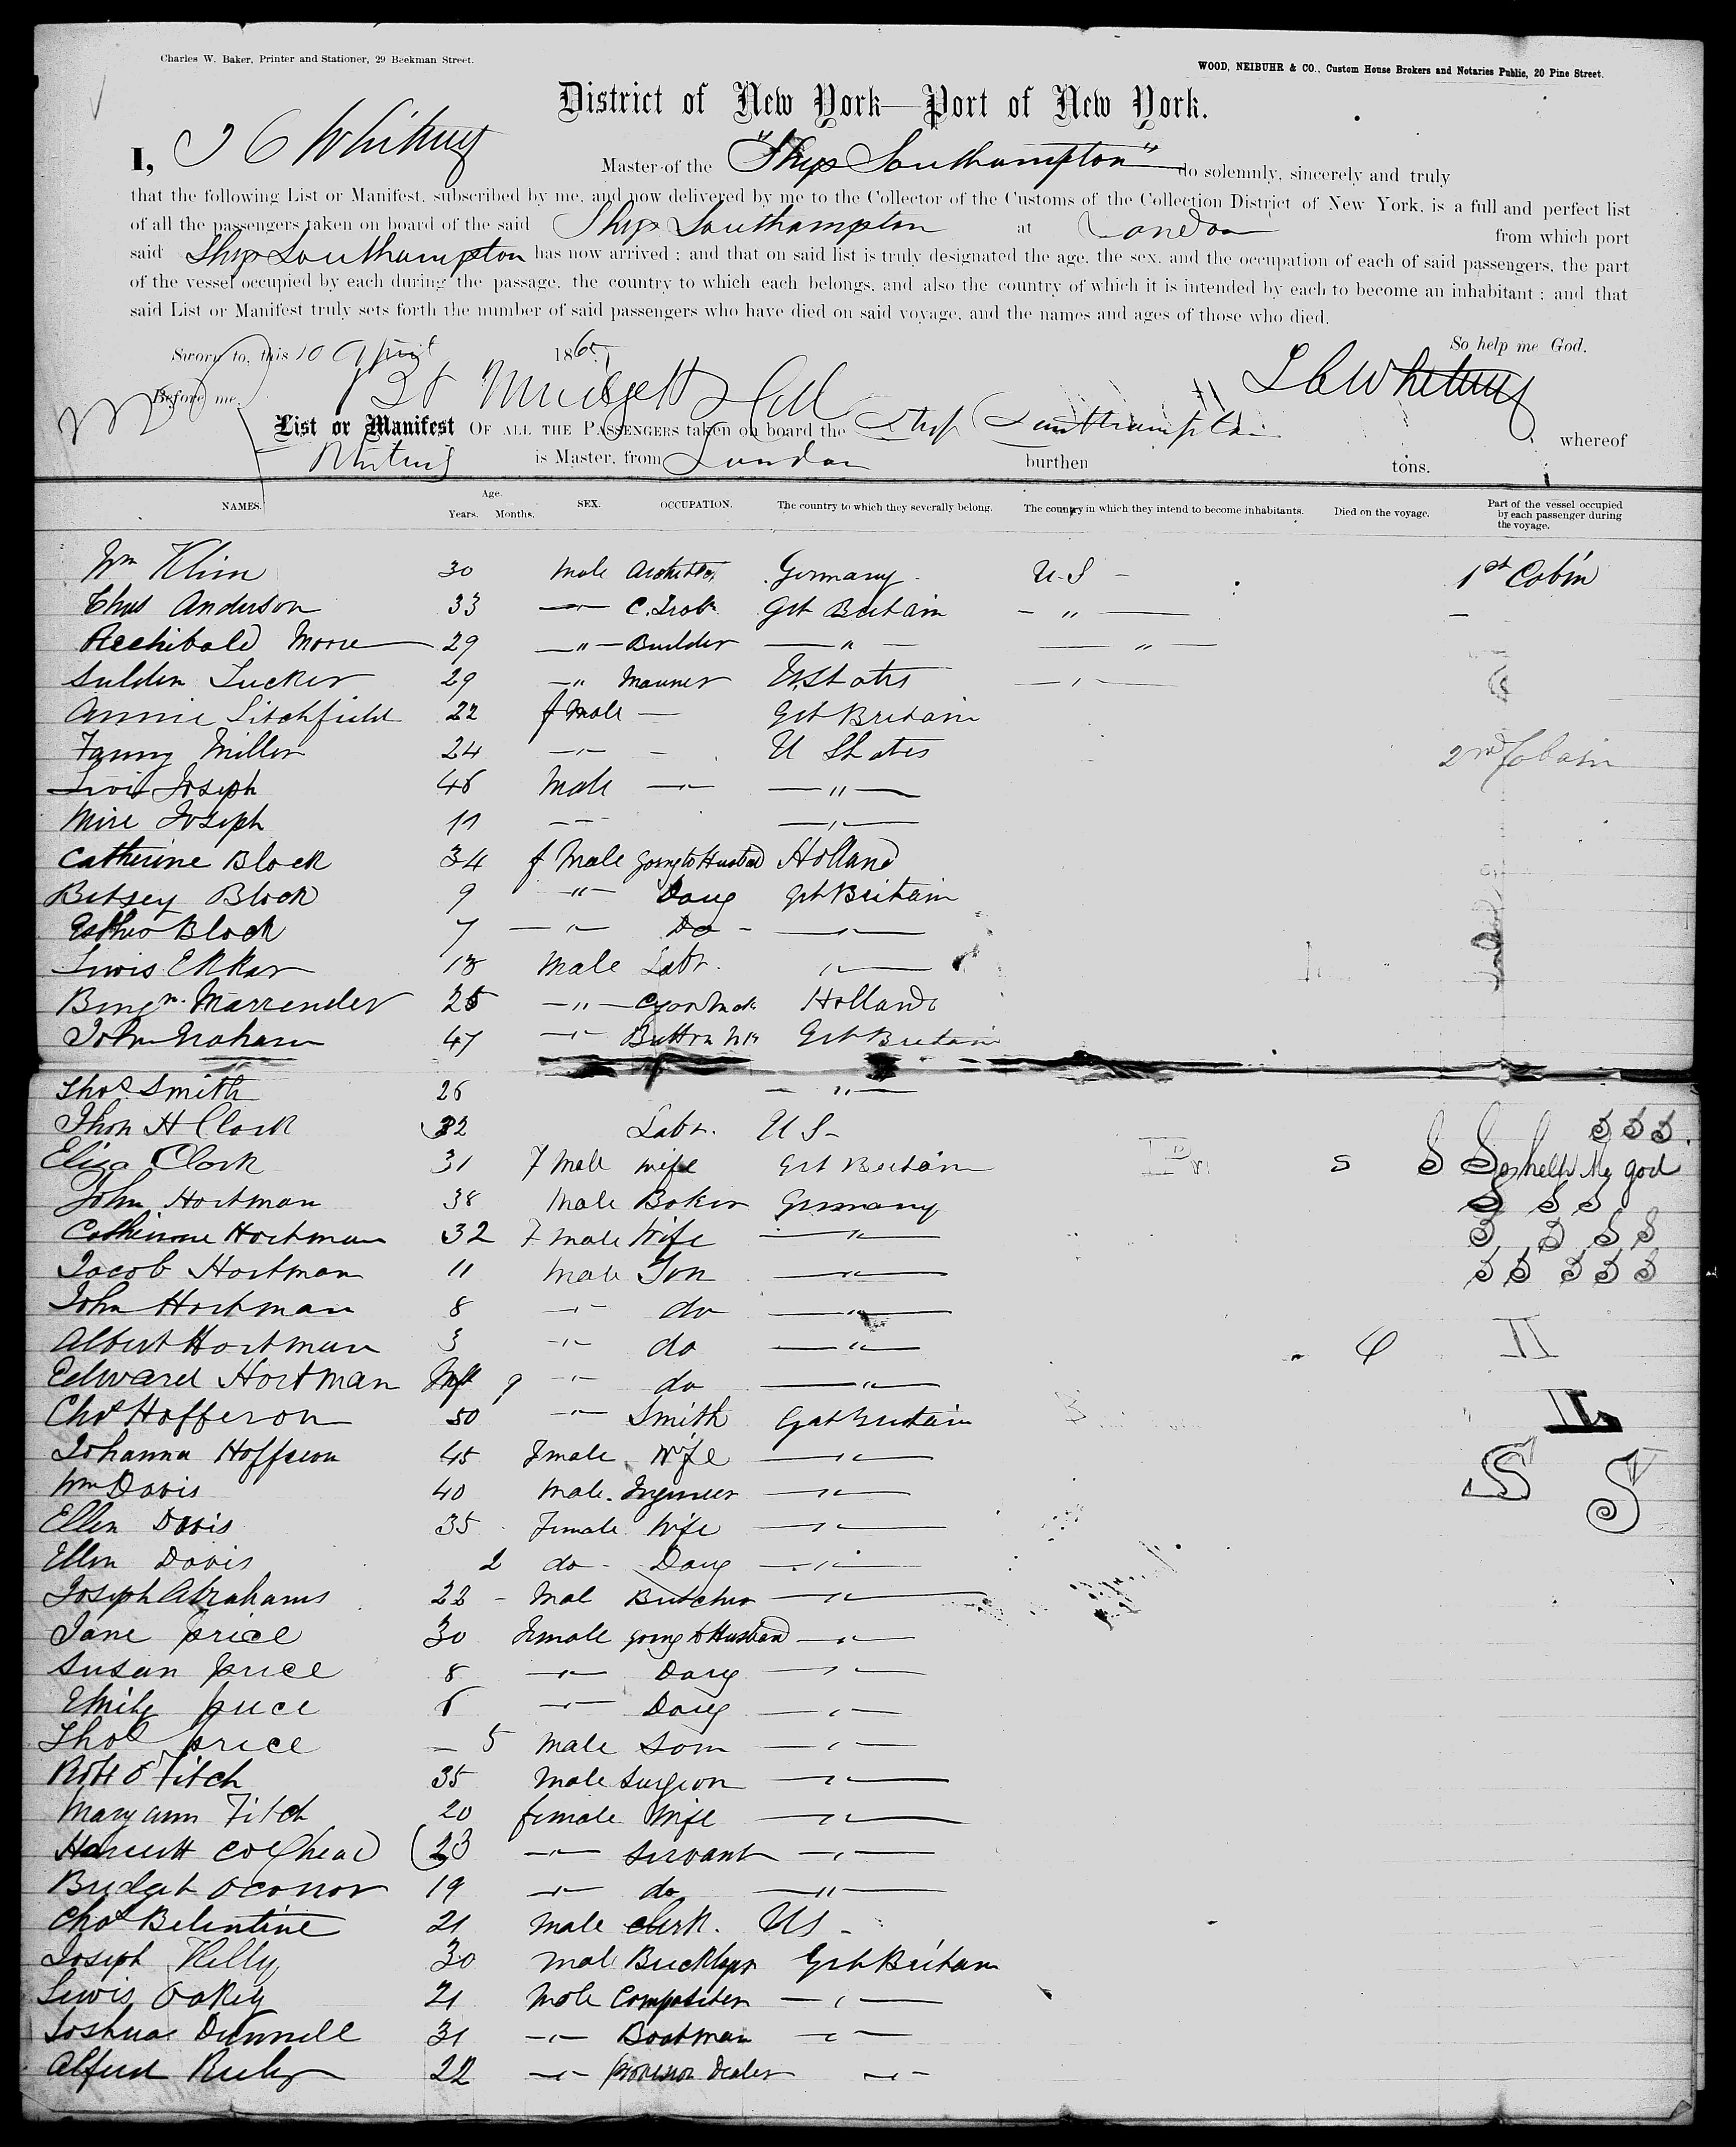 Charles W. Baker, Printer and Stationer, 29 Beekman Street.
WOOD, NEIBUHR & CO., Custom House Brokers and Notaries Public, 20 Pine Street.
District of New York—Port of New York.
I, Whitney Master of the "Ship Southampton" do solemnly, sincerely and truly
that the following List or Manifest, subscribed by me, and now delivered by me to the Collector of the Customs of the Collection District of New York, is a full and perfect list
of all the passengers taken on board of the said Ship Southampton at London from which port
said Ship Southampton has now arrived; and that on said list is truly designated the age, the sex, and the occupation of each of said passengers, the part
of the vessel occupied by each during the passage, the country to which each belongs, and also the country of which it is intended by each to become an inhabitant; and that
said List or Manifest truly sets forth the number of said passengers who have died on said voyage, and the names and ages of those who died.
Sworn to, this 10 April 186 So help me God.
Before me, Whitney
List or Manifest OF ALL THE PASSENGERS taken on board the Ship Southampton whereof
Whitney is Master, from London burthen tons.
NAMES. Age. Years. Months. SEX. OCCUPATION. The country to which they severally belong. The country in which they intend to become inhabitants. Died on the voyage. Part of the vessel occupied by each passenger during the voyage.
Wm Klim 30 Male Germany U.S - 1st Cabin
Chas Anderson 33 — Grt Britain - " —
Archibald Moore 29 — " — Builder — " — — " —
Tucker 29 — " Mariner U.States — " —
Annie Litchfield 22 f Male — Grt Britain
Fanny Miller 24 — " — U States 2nd Cabin
Joseph Male — " — — " —
Joseph 11 — — — " —
Catherine Block 34 f Male going to Husband Holland
Betsey Block 9 — " — Daug Grt Britain
Esther Block 7 — " — Do - — " —
Lewis Ekkar 18 Male Labr. " —
Benjn. Marrender — " — Holland
John Graham 47 — " — Button Mk Grt Britain
Thos Smith 26 — " —
H Clark 32 Labr. U S -
Eliza Clark 31 F Male wife Grt Britain S S So help Me god
John Hortman 38 Male Baker Germany S S S
Catherine Hortman 32 F male Wife — " — S S S S
Jacob Hortman 11 Male Son — " — S S S S S
John Hortman 8 — " — do — " —
Albert Hortman 3 — " — do — " —
Edward Hortman Inft 9 — " — do — " —
Chas Hofferon 50 — " — Smith Grt Britain
Johanna Hofferon 45 Female Wife — " —
Wm Davis 40 Male. Engineer — " — S S
Ellen Davis 35 Female Wife — " —
Ellen Davis 2 do - Daug — " —
Joseph Abrahams 22 - Mal Butcher — " —
Jane Price 30 Female going to Husband — " —
Susan Price 8 — " — Daug — " —
Emily Price 6 — " — Daug — " —
Thos Price — 5 Male Son — " —
Robt O Fitch 35 Male Surgeon — " —
Mary ann Fitch 20 female Wife — " —
Harriett 23 — " — Servant — " —
Bridget OConnor 19 — " — do — " —
Chas Belentine 21 Male Clerk. US -
Joseph Kelly 30 Mal Bricklayer Grt Britain
Lewis Oakey 21 Male Compositer — " —
Joshua Dunnell 31 — " — Boatman — " —
Alfred 22 — " — provision Dealer — " —